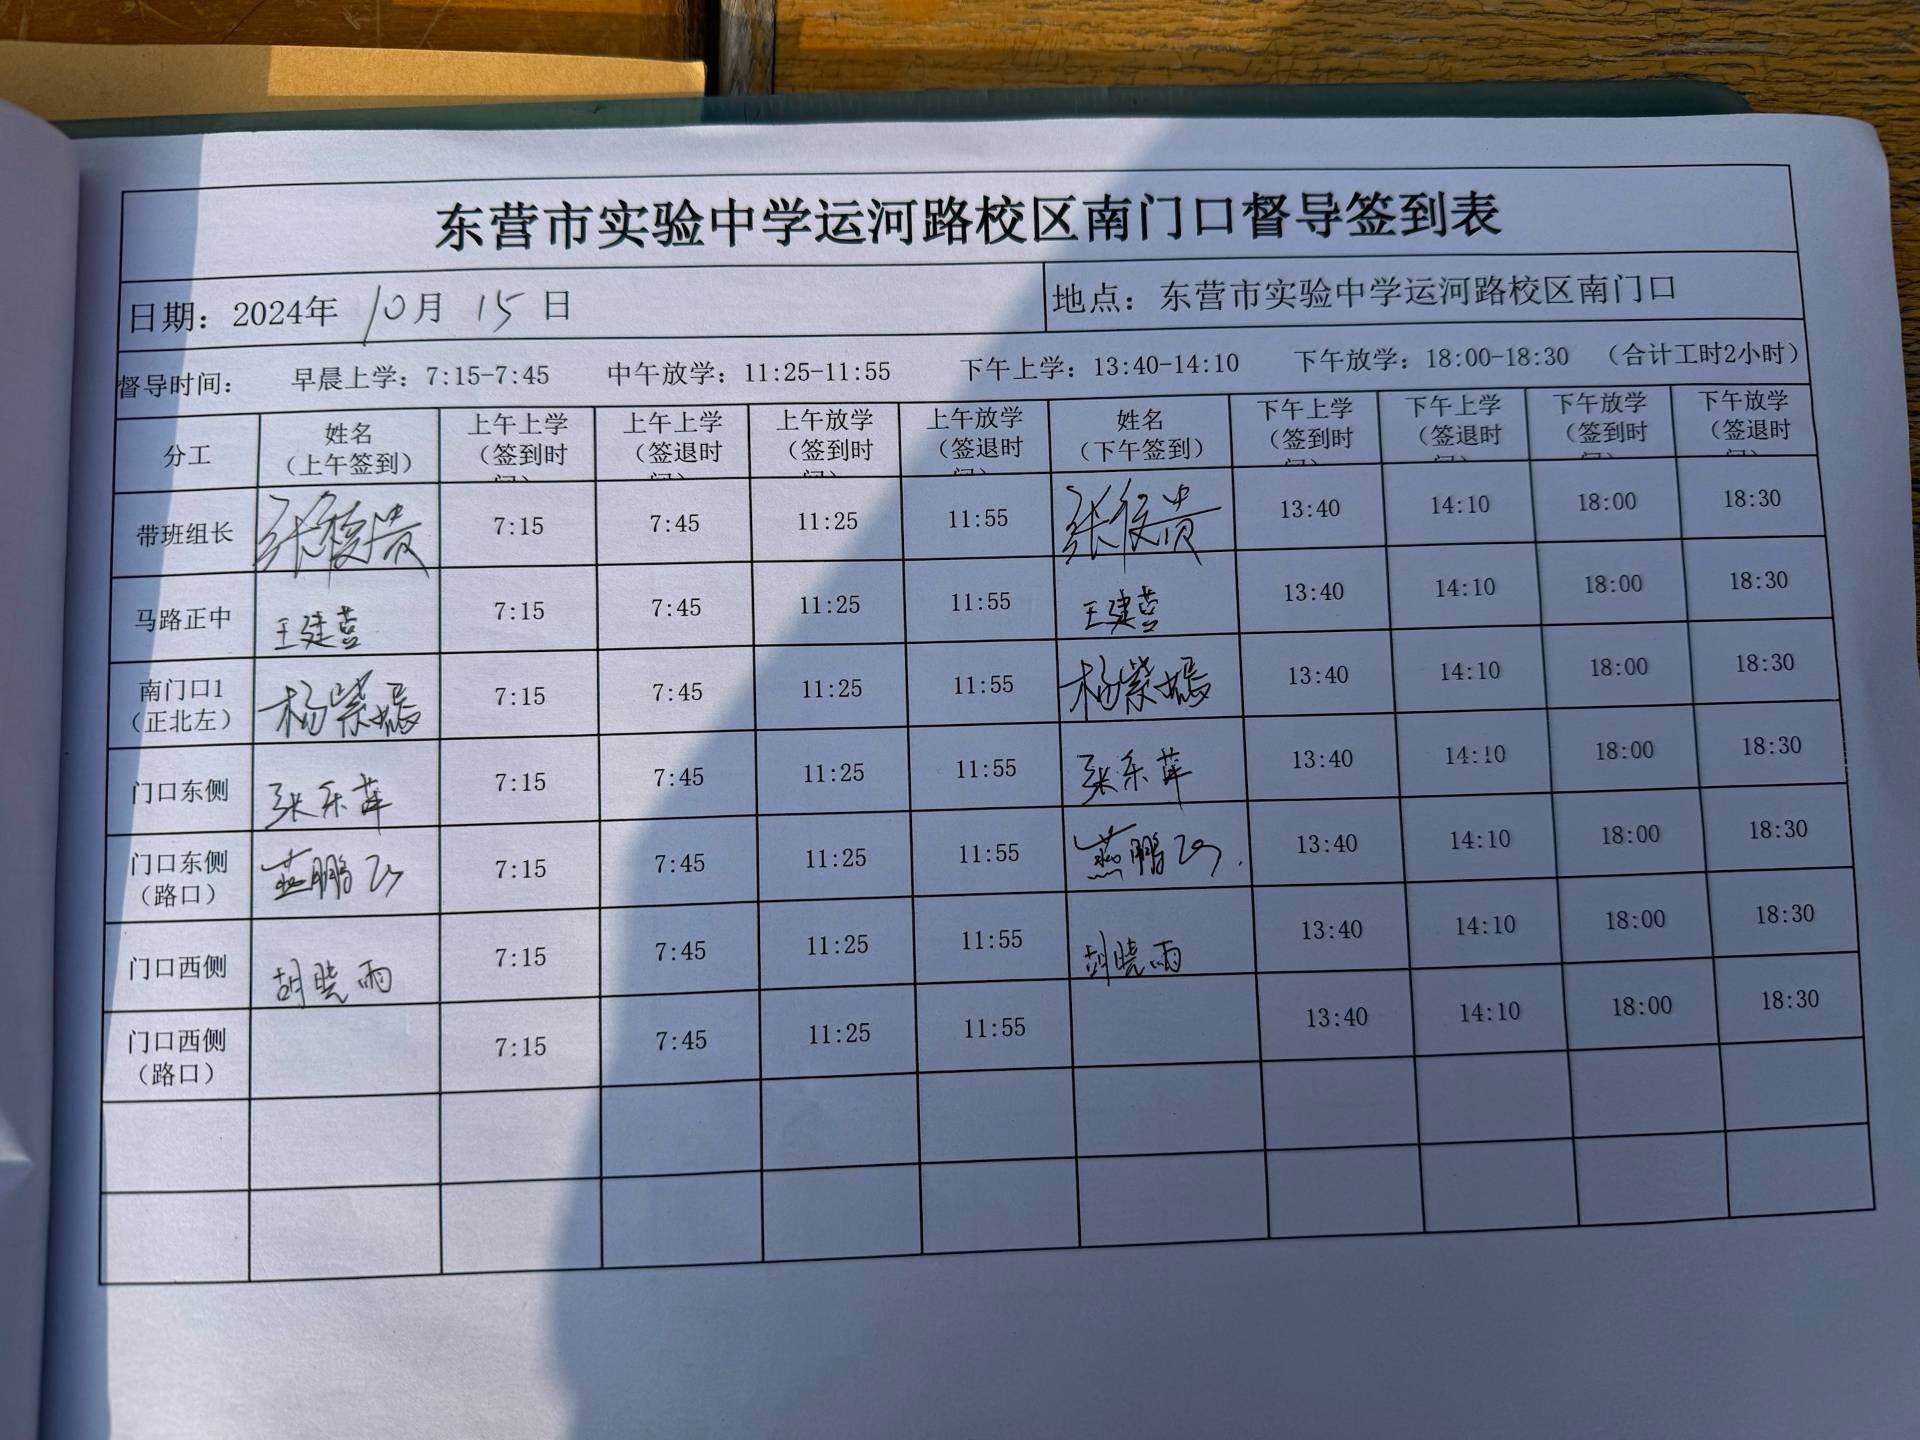 东营市实验中学运河路校区南门口督导签到表
日期：2024年 10月 15日 地点：东营市实验中学运河路校区南门口
督导时间： 早晨上学：7:15-7:45 中午放学：11:25-11:55 下午上学：13:40-14:10 下午放学：18:00-18:30 （合计工时2小时）
分工 姓名（上午签到） 上午上学（签到时间） 上午上学（签退时间） 上午放学（签到时间） 上午放学（签退时间） 姓名（下午签到） 下午上学（签到时间） 下午上学（签退时间） 下午放学（签到时间） 下午放学（签退时间）
带班组长 张俊贵 7:15 7:45 11:25 11:55 张俊贵 13:40 14:10 18:00 18:30
马路正中 王建营 7:15 7:45 11:25 11:55 王建营 13:40 14:10 18:00 18:30
南门口1（正北左） 杨紫嫣 7:15 7:45 11:25 11:55 杨紫嫣 13:40 14:10 18:00 18:30
门口东侧 张乐萍 7:15 7:45 11:25 11:55 张乐萍 13:40 14:10 18:00 18:30
门口东侧（路口） 燕鹏 7:15 7:45 11:25 11:55 燕鹏 13:40 14:10 18:00 18:30
门口西侧 胡晓雨 7:15 7:45 11:25 11:55 胡晓雨 13:40 14:10 18:00 18:30
门口西侧（路口） 7:15 7:45 11:25 11:55 13:40 14:10 18:00 18:30